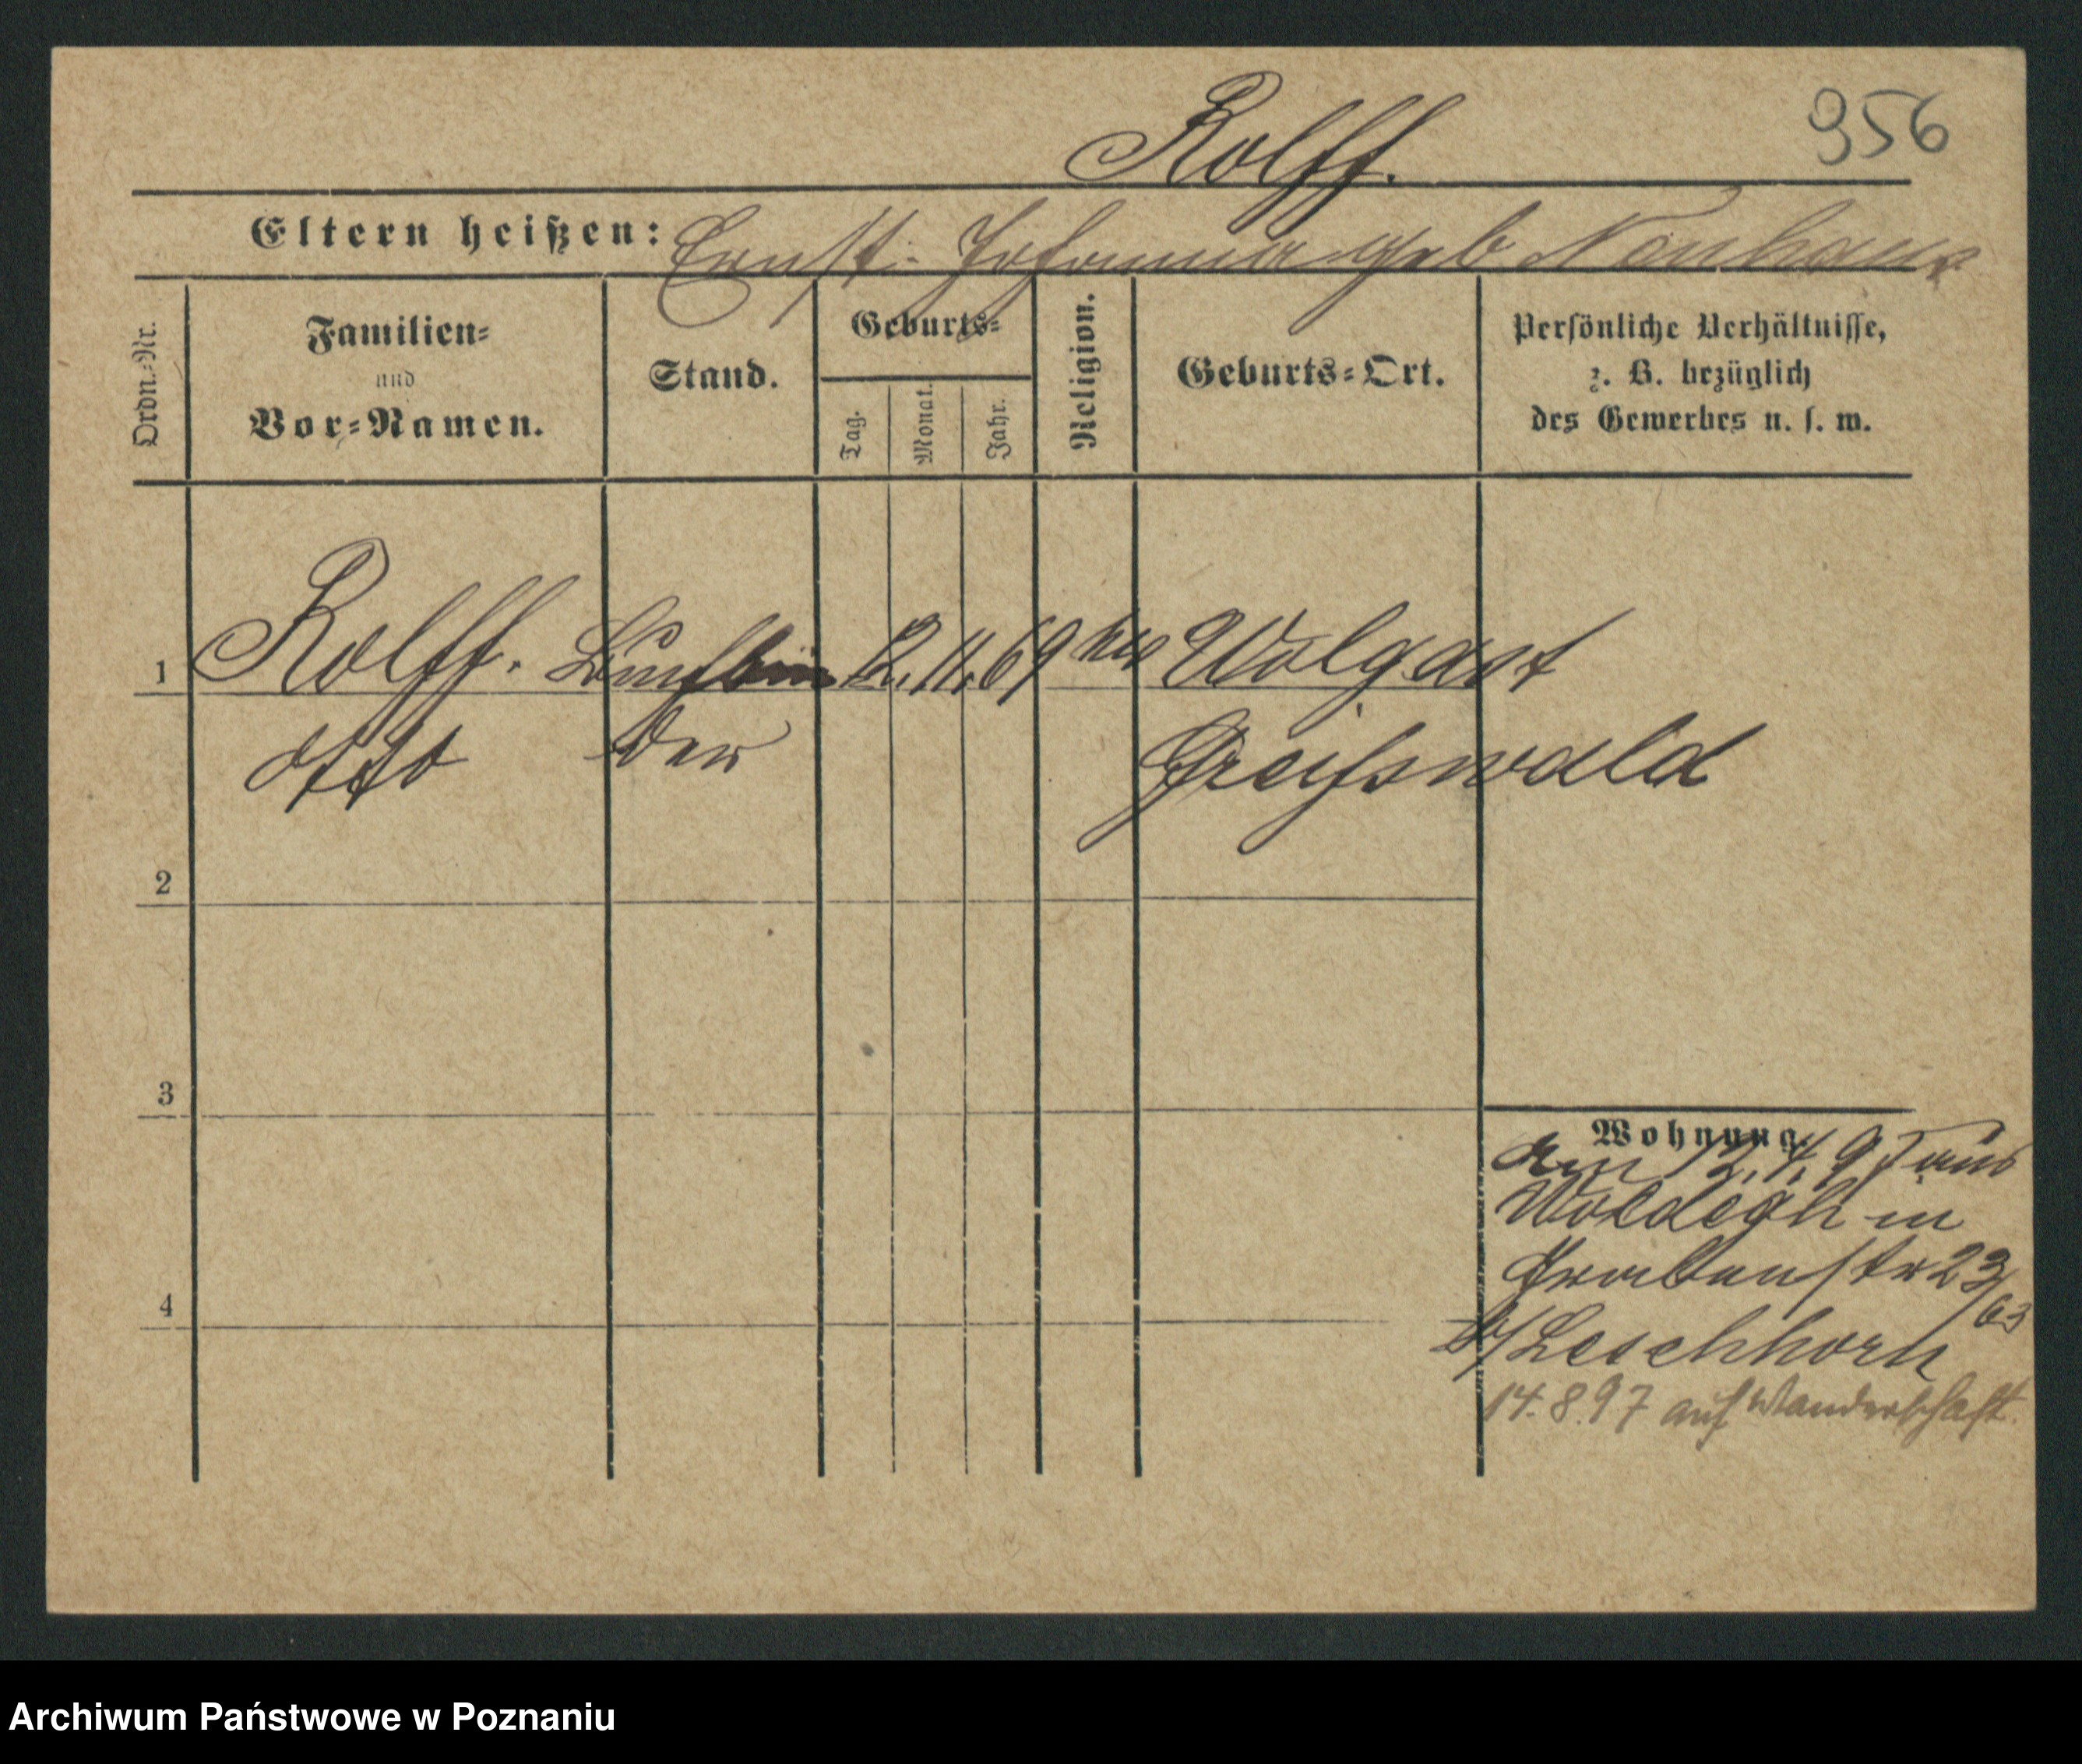 956
Rolff.
Eltern heißen: Ernst. Johanna geb Neuhaus
Ordn.=Nr.
Familien=
und
Vor=Namen.
Stand.
Geburts=
Tag.
Monat.
Jahr.
Religion.
Geburts=Ort.
Persönliche Verhältnisse,
z. B. bezüglich
des Gewerbes u. s. w.
1 Rolff. 12. 11. 69 Wolgast
Otto der Greifswald
2
3
4
Wohnung.
am 12. 4. 97 aus
Woldegk in
Grabenstr 23/
63
b/Leschhorn
14.8.97 auf Wanderschaft.
Archiwum Państwowe w Poznaniu